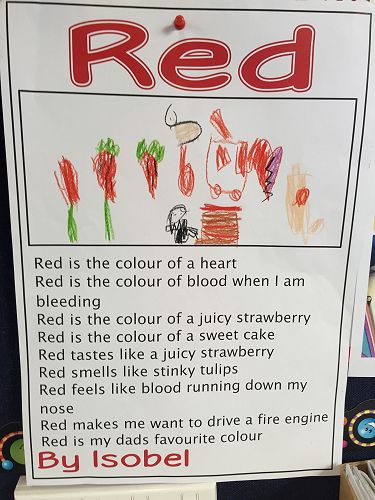 Red
Red is the colour of a heart
Red is the colour of blood when I am
bleeding
Red is the colour of a juicy strawberry
Red is the colour of a sweet cake
Red tastes like a juicy strawberry
Red smells like stinky tulips
Red feels like blood running down my
nose
Red makes me want to drive a fire engine
Red is my dads favourite colour
By Isobel